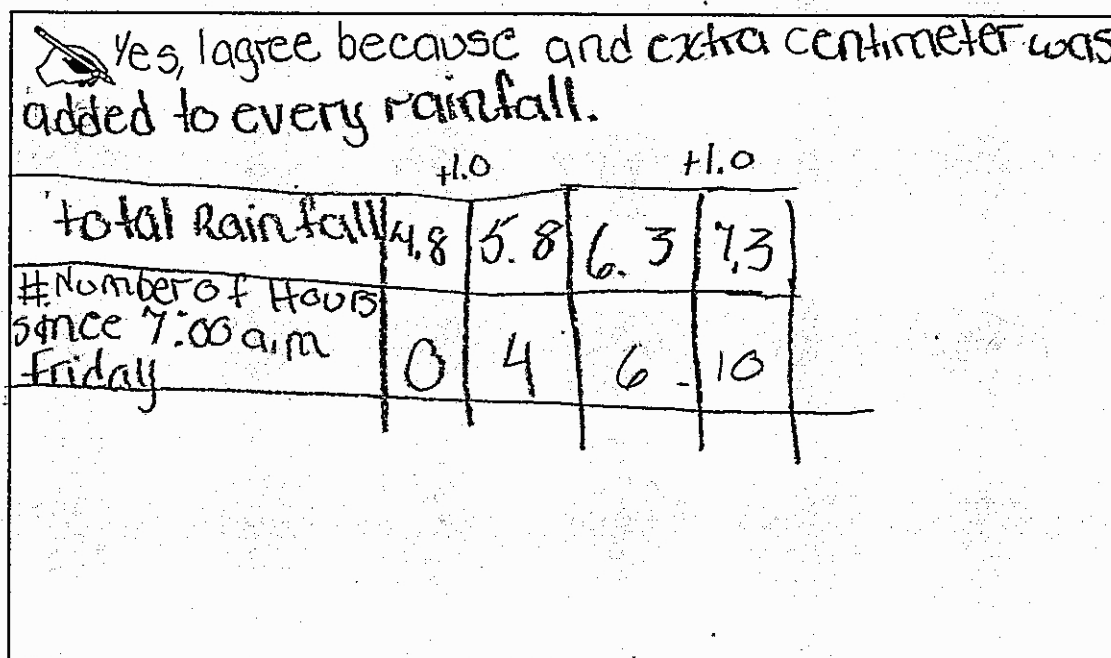 Yes, I agree because and extra centimeter was
added to every rainfall.
+1.0 +1.0
total Rainfall 4.8 5.8 6.3 7.3
# Number of Hours
since 7:00 a.m
Friday 0 4 6 10